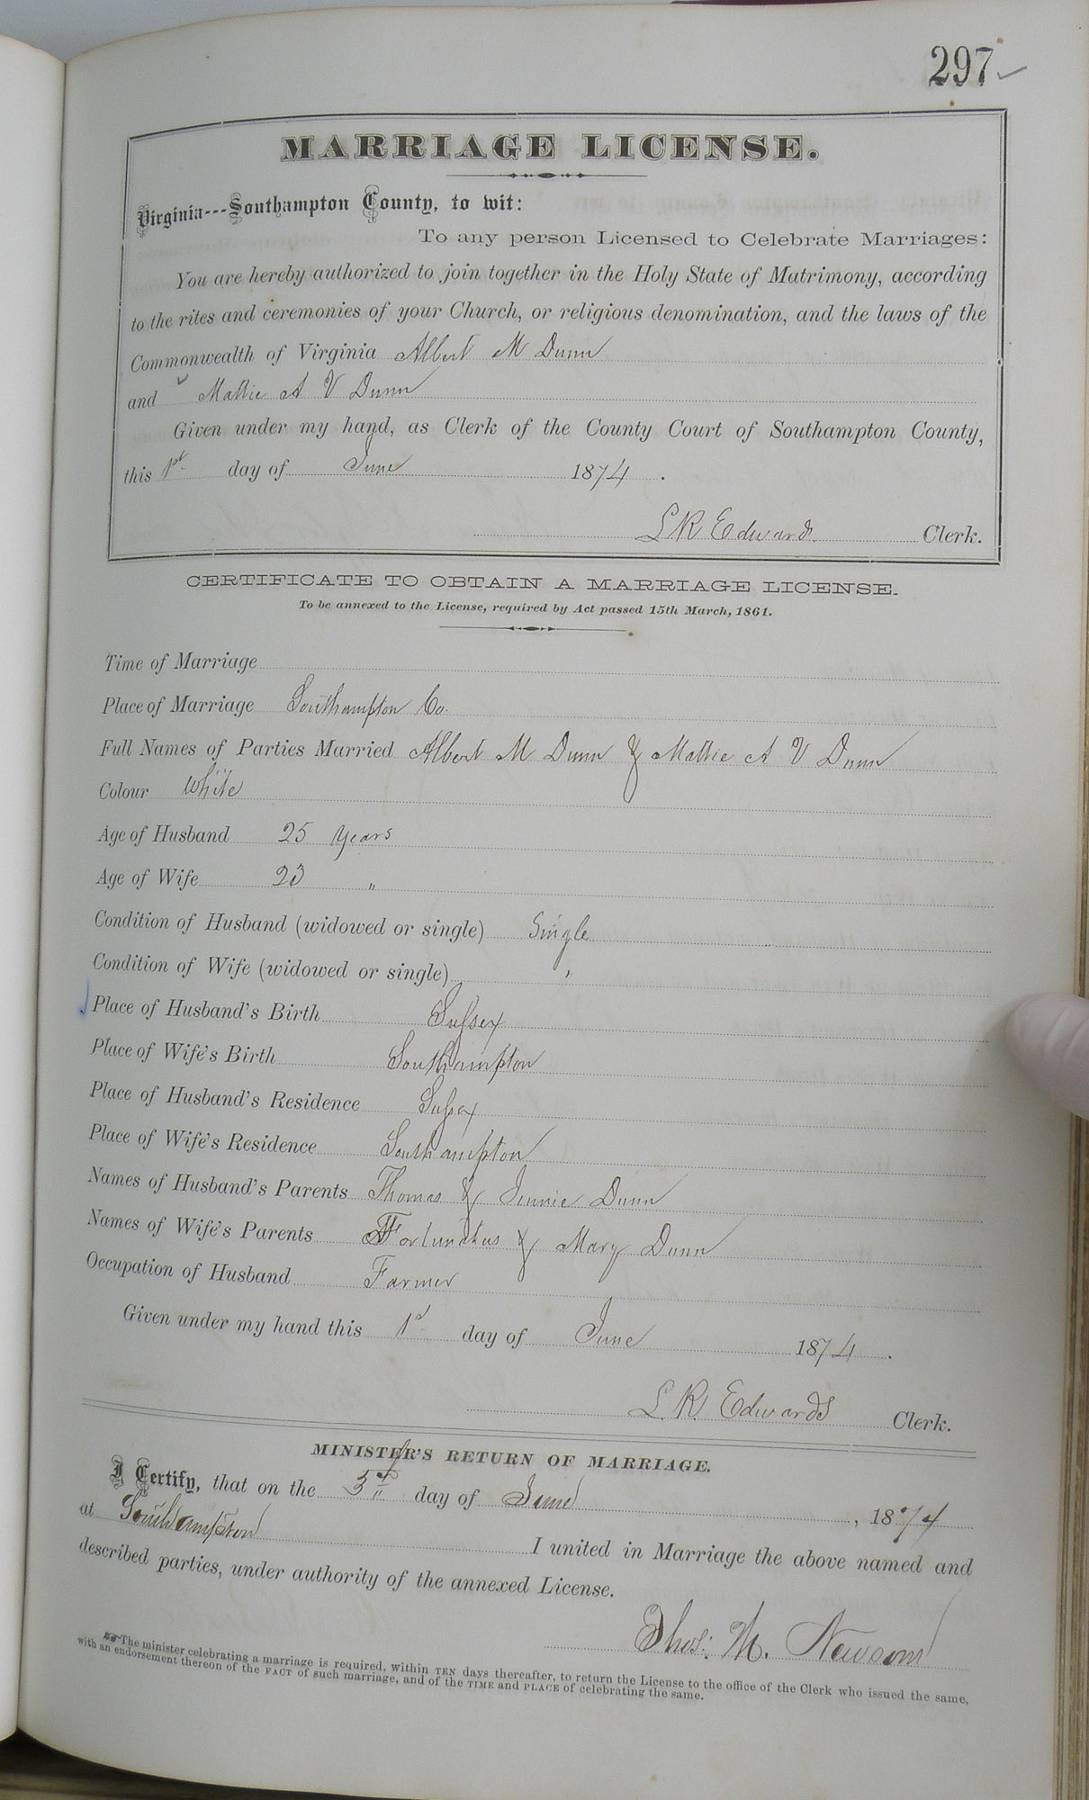 297
MARRIAGE LICENSE.
Virginia---Southampton County, to wit:
To any person Licensed to Celebrate Marriages:
You are hereby authorized to join together in the Holy State of Matrimony, according
to the rites and ceremonies of your Church, or religious denomination, and the laws of the
Commonwealth of Virginia Albert M Dunn
and Mattie A V Dunn
Given under my hand, as Clerk of the County Court of Southampton County,
this 1st day of June 1874.
L R Edwards Clerk.
CERTIFICATE TO OBTAIN A MARRIAGE LICENSE.
To be annexed to the License, required by Act passed 15th March, 1861.
Time of Marriage
Place of Marriage Southampton Co.
Full Names of Parties Married Albert M Dunn & Mattie A V Dunn
Colour White
Age of Husband 25 years
Age of Wife 23 "
Condition of Husband (widowed or single) Single
Condition of Wife (widowed or single) "
Place of Husband's Birth Sussex
Place of Wife's Birth Southampton
Place of Husband's Residence Sussex
Place of Wife's Residence Southampton
Names of Husband's Parents Thomas & Jennie Dunn
Names of Wife's Parents Fortunatus & Mary Dunn
Occupation of Husband Farmer
Given under my hand this 1st day of June 1874.
L. R. Edwards Clerk.
MINISTER'S RETURN OF MARRIAGE.
I Certify, that on the day of June, 1874
at Southampton I united in Marriage the above named and
described parties, under authority of the annexed License.
Thos: M. Newsom
The minister celebrating a marriage is required, within TEN days thereafter, to return the License to the office of the Clerk who issued the same,
with an endorsement thereon of the FACT of such marriage, and of the TIME and PLACE of celebrating the same.